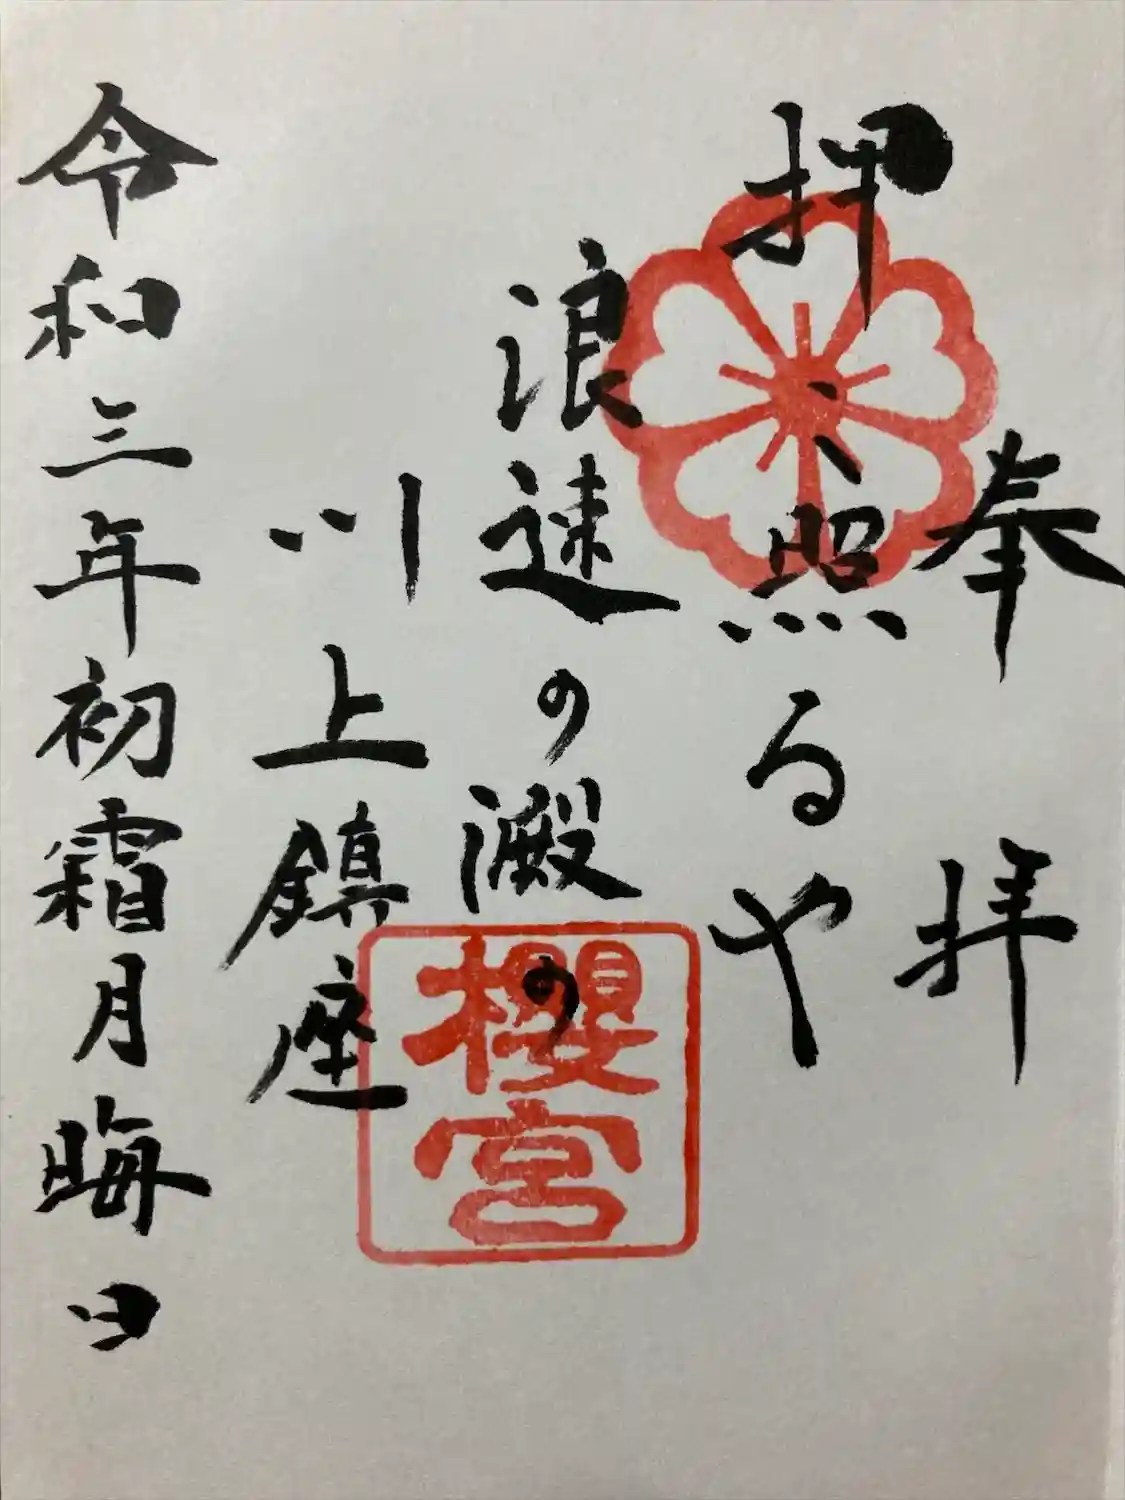 奉拝
押照るや
浪速の澱の
川上鎮座
令和三年初霜月晦日
櫻宮